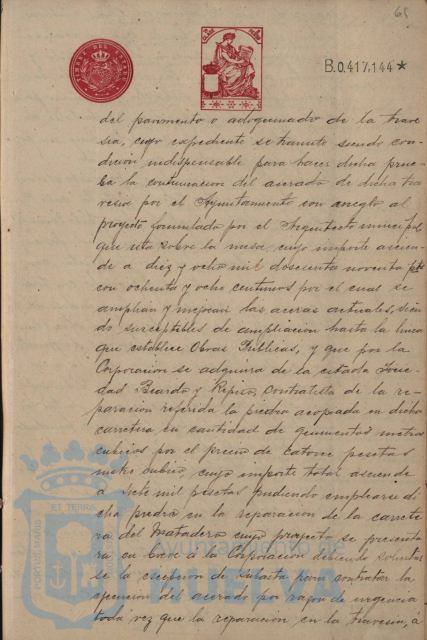 65
B.0.417.144 *
del pavimento o adoquinado de la trave
sia, cuyo expediente se tramita siendo con
dicion indispensable para hacer dicha prue
ba la continuacion del acerado de dicha tra
vesia por el Ayuntamiento con arreglo al
proyecto formulado por el Arquitecto municipal
que está sobre la mesa, cuyo importe ascien
de a diez y ocho mil doscientas noventa ptas
con ochenta y ocho centimos por el cual se
amplian y mejoran las aceras actuales, sien
do susceptibles de ampliacion hasta la linea
que establece Obras Publicas, y que por la
Corporacion se adquiera de la citada Socie
dad Beardo y Repiso, contratista de la re
paracion referida la piedra acopada en dicha
carretera en cantidad de quinientos metros
cubicos por el precio de catorce pesetas
metro cubico, cuyo importe total asciende
a siete mil pesetas pudiendo emplearse di
cha piedra en la reparacion de la carrete
ra del Matadero cuyo proyecto se presenta
ra en breve a la Corporacion debiendo solicitar
se la excepcion de subasta para contratar la
ejecucion del acerado por razon de urgencia
toda vez que la reparacion en la travesia, a
PORTUS MARIS ET TERRAE
Ayuntamiento de
HUELVA